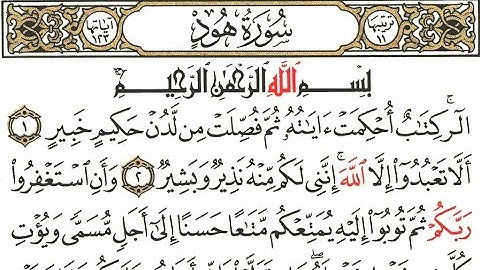 ترتيبها ١١ سُورَةُ هُودٍ آياتها ١٢٣
بِسْمِ اللَّهِ الرَّحْمَٰنِ الرَّحِيمِ
الٓر ۚ كِتَٰبٌ أُحْكِمَتْ ءَايَٰتُهُۥ ثُمَّ فُصِّلَتْ مِن لَّدُنْ حَكِيمٍ خَبِيرٍ ١
أَلَّا تَعْبُدُوٓا۟ إِلَّا ٱللَّهَ ۚ إِنَّنِى لَكُم مِّنْهُ نَذِيرٌ وَبَشِيرٌ ٢ وَأَنِ ٱسْتَغْفِرُوا۟
رَبَّكُمْ ثُمَّ تُوبُوٓا۟ إِلَيْهِ يُمَتِّعْكُم مَّتَٰعًا حَسَنًا إِلَىٰٓ أَجَلٍ مُّسَمًّى وَيُؤْتِ